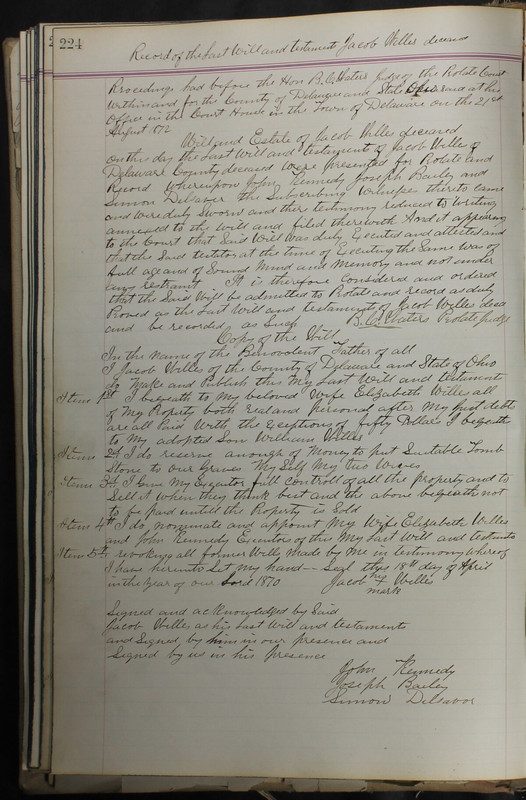 224
Record of the Last Will and testament Jacob Willes deceasd
Procedings had before the Hon B. C. Waters Judge of the Probate Court
Within and for the County of Delaware and State Ohio and at his
Office in the Court House in the Town of Delaware on the 21st
August 1872
Will and Estate of Jacob Willes deceasd
On this day the Last Will and testament of Jacob Willes of
Delaware County deceasd were presented for Probate and
Record Whereupon John Kennedy Joseph Bailey and
Simon Delsaver the Subscribing Witnesses thereto came
and were duly Sworn and there testimony reduced to Writing
annexed to the Will and filed therewith And it appearing
to the Court that Said Will was duly Excuted and attested and
that the Said testator at the time of Excuting the Same was of
full age and of Sound Mind and Memory and not under
any restraint It is therefore Considered and ordered
that the Said Will be admitted to Probate and record as duly
Proved as the Last Will and testament of Jacob Willes decd
and be recorded as Such B. C. Waters Probate Judge
Copy of the Will
In the Name of the Benevolent Father of all
I Jacob Willes of the County of Delaware and State of Ohio
do Make and Publish this My Last Will and testament
Item 1st I beqeath to My beloved Wife Elizabeth Willes all
of My Property both real and Personal after My Just debts
are all Paid With the Exceptions of fifty Dollars I beqeath
to My adopted Son William Willes
Item 2d I do reserve anough of Money to put Suitable Tomb
Stone to our Graves My Self My two Wives
Item 3d I Give My Executor full controll of all the property and to
Sell it when they think best and the above beqeath not
to be paid untill the Property is Sold
Item 4th I do nominate and appoint My Wife Elizabeth Willes
and John Kennedy Excutors of this My Last Will and testiment
Item 5th revokeing all former Wills Made by Me in testimony whereof
I have hereunto Set my hand — Seal thys 18th day of April
in the Year of our Lord 1870 Jacob his X Willes
mark
Signed and acknowledged by Said
Jacob Willes as his Last Will and testament
and Signed by him in our presence and
Signed by us in his presence
John Kennedy
Joseph Bailey
Simon Delsavor